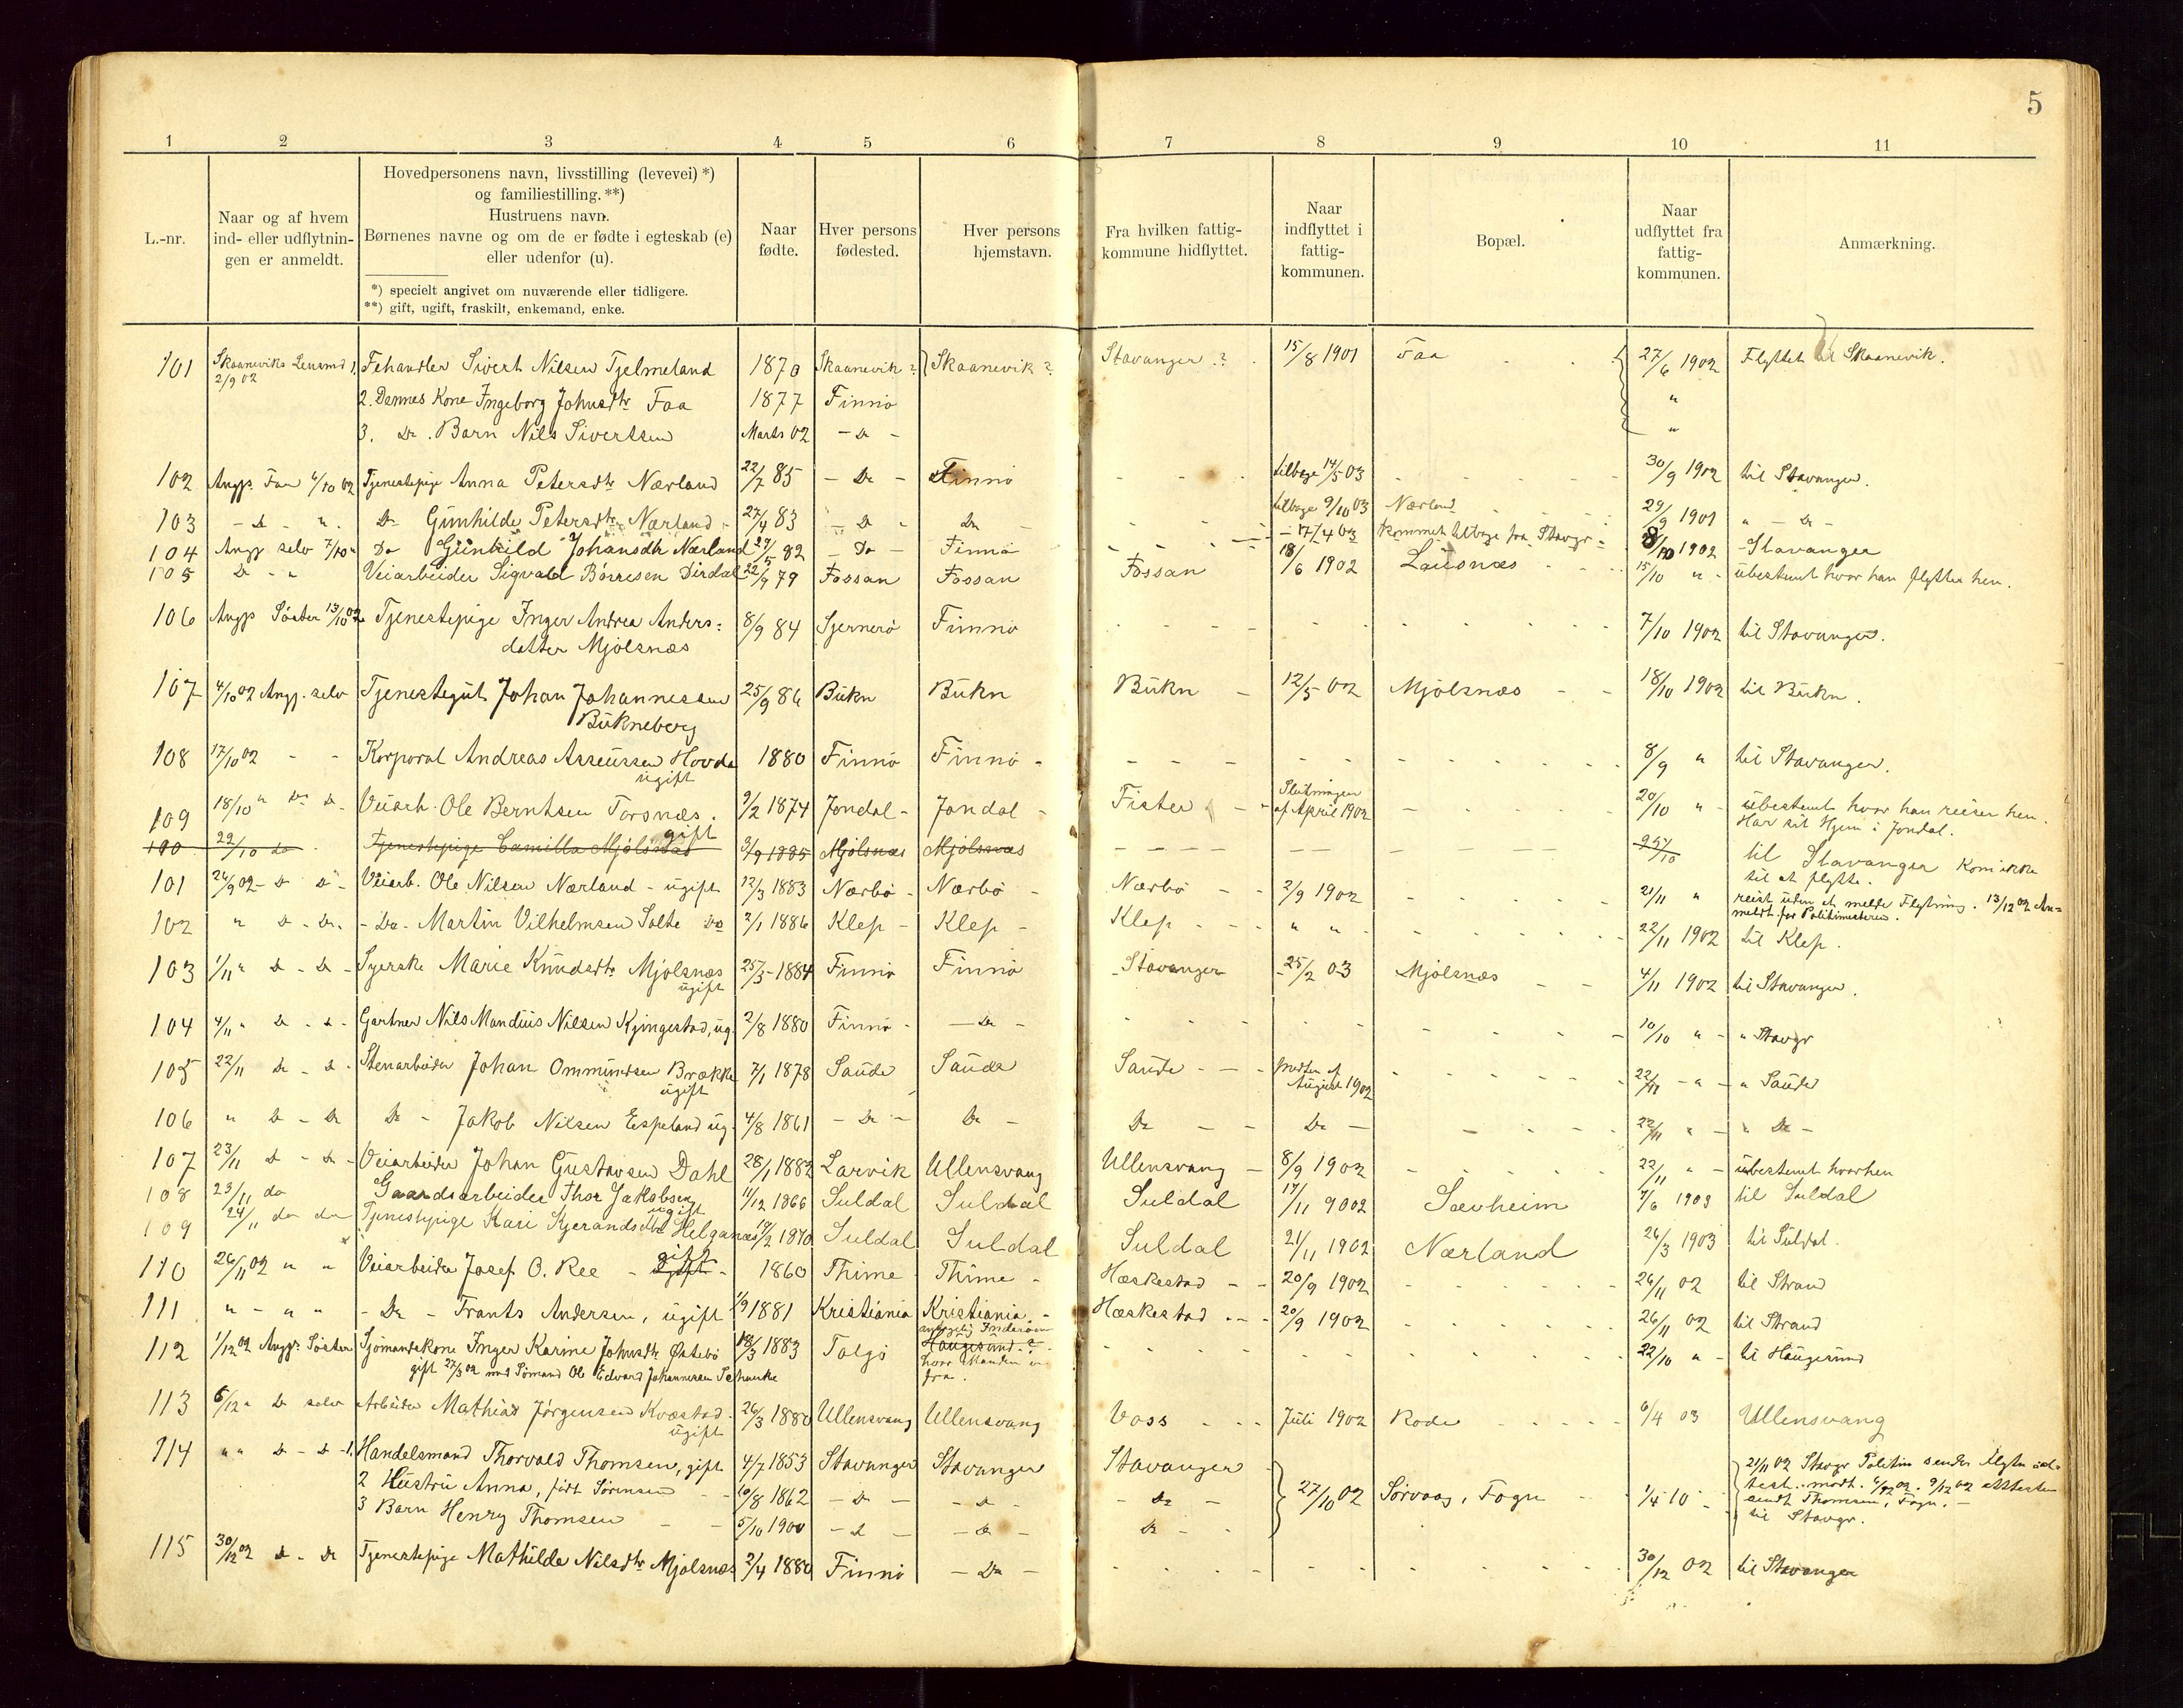 5
1 2 3 4 5 6 7 8 9 10 11
L.-nr.
Naar og af hvem
ind- eller udflytnin-
gen er anmeldt.
Hovedpersonens navn, livsstilling (levevei) *)
og familiestilling. **)
Hustruens navn.
Børnenes navne og om de er fødte i egteskab (e)
eller udenfor (u).
*) specielt angivet om nuværende eller tidligere.
**) gift, ugift, fraskilt, enkemand, enke.
Naar
fødte.
Hver persons
fødested.
Hver persons
hjemstavn.
Fra hvilken fattig-
kommune hidflyttet.
Naar
indflyttet i
fattig-
kommunen.
Bopæl.
Naar
udflyttet fra
fattig-
kommunen.
Anmærkning.
101 Skaaneviks Lensmd. Fehandler Sivert Nilsen Tjelmeland 1870 Skaanevik? Skaanevik? Stavanger? 15/8 1901 Faa 27/6 1902 Flyttet til Skaanevik.
2/9 02
2. Dennes Kone Ingeborg Johnsdtr Faa 1877 Finnö "
3. Do. Barn Nils Sivertsen Marts 02 - Do - "
102 Angp. Faa 6/10 02 Tjenestepige Anna Petersdtr Nærland 22/7 85 - Do - Finnö tilbage 14/5 03 30/9 1902 til Stavanger.
103 - Do - ". Do Gunhilde Petersdtr Nærland 27/4 83 - Do - Do - tilbage 9/10 03 Nærland 29/9 1901 " - Do -
104 Angp selv 7/10 " Do Gunhild Johansdtr Nærland 29/5 82 - Do - Finnö - 17/4 03 kommet tilbage fra Stavgr 8/10 1902 - Stavanger
105 Do - " Veiarbeider Sigvald Börresen Dirdal 22/9 79 Fossan Fossan Fossan 18/6 1902 Lausnæs 15/10 " - ubestemt hvor han flytter hen.
106 Angp Söster 13/10 02 Tjenestepige Inger Andrea Anders- 8/9 84 Sjernerö Finnö 7/10 1902 til Stavanger.
datter Mjölsnæs
107 4/10 02 Angp. selv Tjenestegut Johan Johannessen 25/9 86 Bukn Bukn Bukn - 12/5 02 Mjölsnæs 18/10 1902 til Bukn.
Bukneberg
108 17/10 02 - - Korporal Andreas Asseussen Hovda 1880 Finnö Finnö - 8/9 " til Stavanger.
ugift
109 18/10 " Do Do - Veiarb. Ole Berntsen Torsnæs. 9/2 1874 Jondal - Jondal - Fister - - Slutningen
af April 1902 20/10 " - ubestemt hvor han reiser hen.
gift Har sit Hjem i Jondal.
100 22/10 do Tjenestepige Camilla Mjölsnæs 3/9 1885 Mjölsnæs Mjölsnæs 25/10 til Stavanger Kom ikke
til at flytte.
101 26/9 02 - Do Do - Veiarb. Ole Nilsen Nærland - ugift 12/3 1883 Nærbö - Nærbö - Nærbö - - 2/9 1902 21/11 " reist uden at melde Flytning. 13/12 02 An-
meldt for Politimesteren.
102 " Do - Do. - Do. - Martin Vilhelmsen Salte Do 2/1 1886 Klep - Klep - Klep " " 22/11 1902 til Klep.
103 1/11 " Do - Do - Syerske Marie Knudsdtr Mjölsnæs 25/3 - 1884 Finnö Finnö - Stavanger - 25/2 03 Mjölsnæs 4/11 1902 til Stavanger.
ugift
104 4/11 " Do - Do - Gartner Nils Mandius Nilsen Kjingestad, ug. 2/8 1880 Finnö - - Do - 10/10 " - " Stavgr
105 22/11 Do - Do - Stenarbeider Johan Ommundsen Brække 7/1 1878 Saude Saude Saude - - midten af
August 1902 22/11 - " - " Saude
ugift
106 " Do - Do Do - Jakob Nilsen Espeland ug. 4/8 1861 - Do - Do - Do - - Do - 22/11 " - " Do -
107 23/11 Do - Do - Veiarbeider Johan Gustavsen Dahl 28/1 1882 Larvik Ullensvang Ullensvang - 8/9 1902 22/11 " - ubestemt hvorhen
108 23/11 do Gaardsarbeider Thor Jakobsen 11/12 1866 Suldal Suldal Suldal 17/11 9002 Sævheim 7/6 1903 til Suldal
ugift
109 24/11 do do Tjenestepige Kari Kjerandsdtr Helganæs 19/2 1870 Suldal Suldal Suldal 21/11 1902 Nærland 26/3 1903 til Suldal.
110 26/11 02 " " Veiarbeider Josef O. Ree - gift - 1860 Thime Thime - Hæskestad - - 20/9 1902 26/11 02 til Strand
111 " - " " - Do - Frants Andersen, ugift 1/9 1881 Kristiania Kristiania - Hæskestad - - 20/9 1902 26/11 02 til Strand
112 1/12 02 Angp. Söster Sjömandskone Inger Karine Johnsdtr Östebö 18/3 1883 Talgö Haugesund? 22/10 " - til Haugesund
gift 27/3 02 med Sömand Ole Edvard Johannesen hvor Manden er
fra.
113 6/12 " Do selv Arbeider Mathias Jörgensen Kvæstad. 26/3 1880 Ullensvang Ullensvang Voss - - - Juli 1902 Rode 6/4 03 Ullensvang
ugift
114 " " Do - Do - 1. Handelsmand Thorvald Thomsen, gift 4/7 1853 Stavanger Stavanger Stavanger 21/11 02 Stavgr Politi sender Flytn
2 Hustru Anna, födt Sörensen - - 10/8 1862 - Do - - Do - - Do - 27/10 02 Sörvaag, Fogn 1/4 10 -
3 Barn Henry Thomsen - - 5/10 1900 - Do - - Do - Do - - sendt Thomsen, Fogn. -
til Stavgr.
115 30/12 02 Do - Do Tjenestepige Mathilde Nilsdtr Mjölsnæs 2/4 1880 Finnö - Do - 30/12 02 til Stavanger